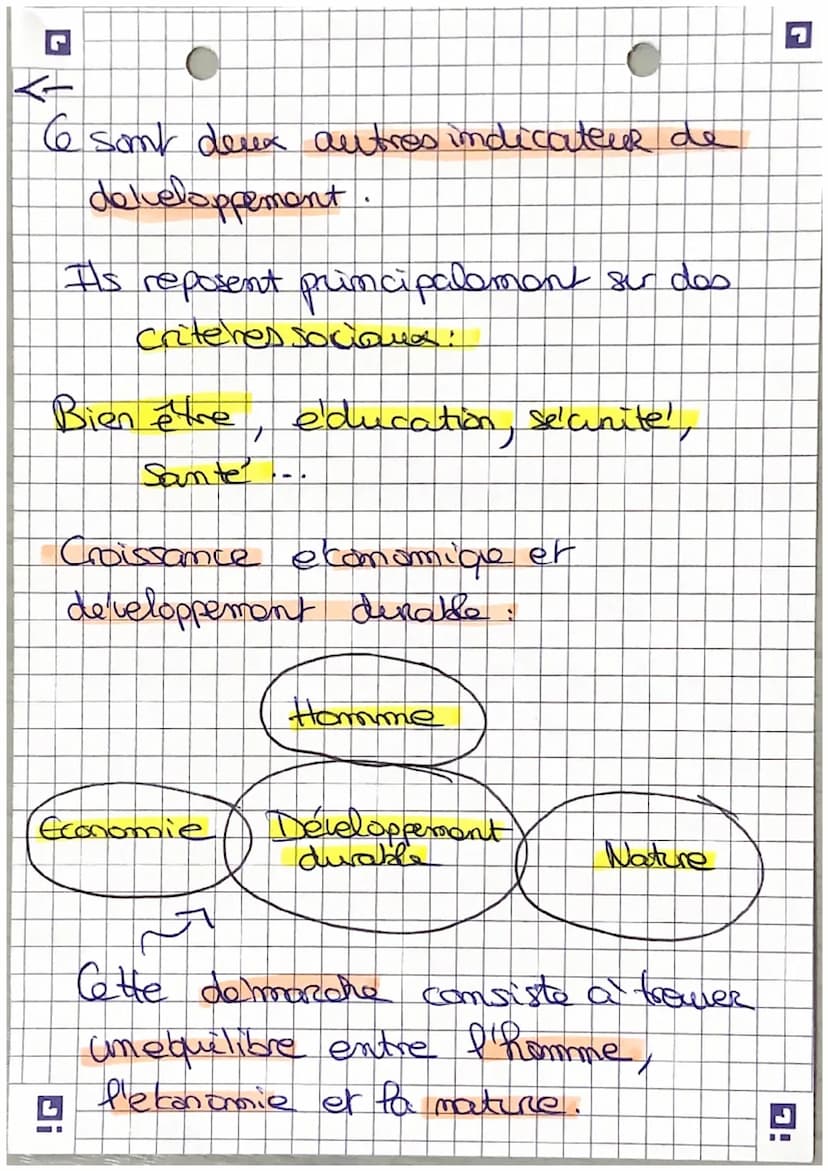 Ce sont deux autres indicateur de
développement.
Ils reposent principalement sur des
critères sociaux :
Bien être, éducation, sécurité,
Santé ...
Croissance économique et
développement durable :
Homme
Economie
Développement
durable
Nature
Cette démarche consiste à trouver
un équilibre entre l'homme,
l'économie et la nature.